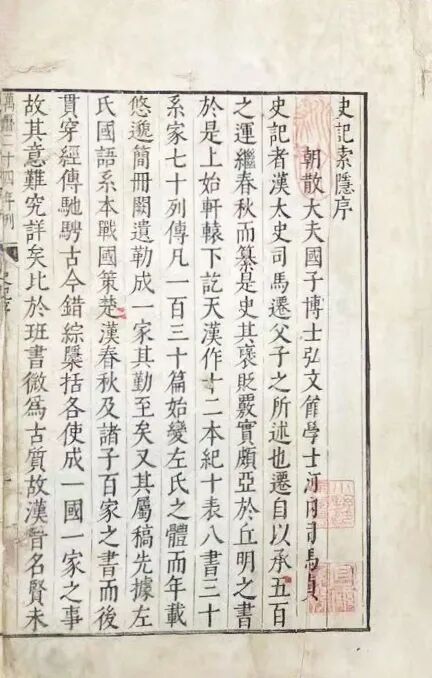 史記索隱序
朝散大夫國子博士弘文館學士河內司馬貞
史記者漢太史司馬遷父子之所述也遷自以承五百
之運繼春秋而纂是史其襃貶覈實頗亞於丘明之書
於是上始軒轅下訖天漢作十二本紀十表八書三十
系家七十列傳凡一百三十篇始變左氏之體而年載
悠邈簡冊闕遺勒成一家其勤至矣又其屬稿先據左
氏國語系本戰國策楚漢春秋及諸子百家之書而後
貫穿經傳馳騁古今錯綜檃括各使成一國一家之事
故其意難究詳矣比於班書微爲古質故漢晉名賢未
萬曆二十四年刊